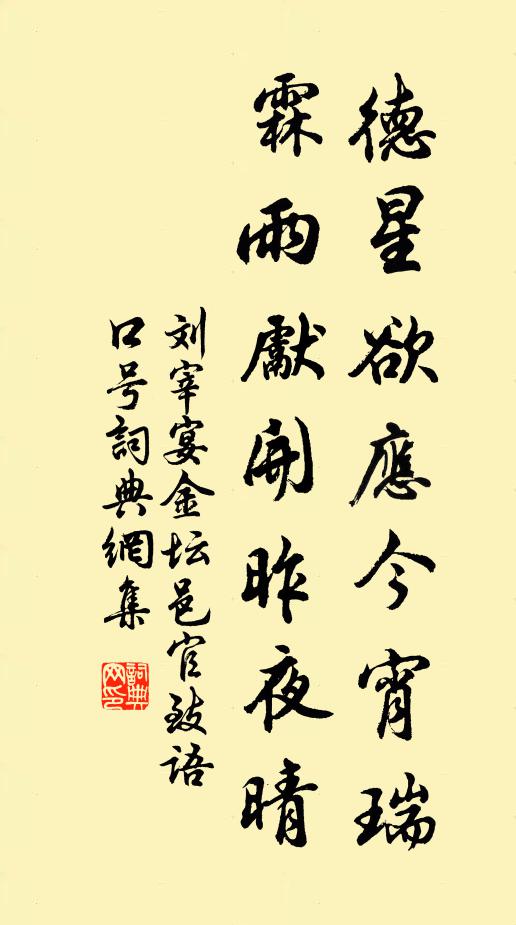 德星欲應今宵瑞
霖雨獻開昨夜晴
刘宰宴金坛邑官致语
口号詞典網集
詞典网印